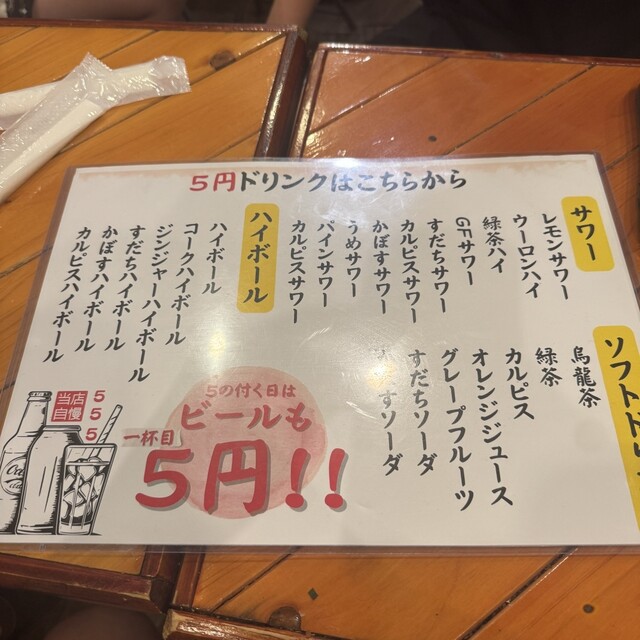 5円ドリンクはこちらから
サワー
レモンサワー
ウーロンハイ
緑茶ハイ
GFサワー
すだちサワー
カルピスサワー
かぼすサワー
うめサワー
パインサワー
カルピスサワー
ハイボール
ハイボール
コークハイボール
ジンジャーハイボール
すだちハイボール
かぼすハイボール
カルピスハイボール
ソフトドリ
烏龍茶
緑茶
カルピス
オレンジジュース
グレープフルーツ
すだちソーダ
すソーダ
当店
自慢
5
5
5
5の付く日は
ビールも
一杯目
5円!!